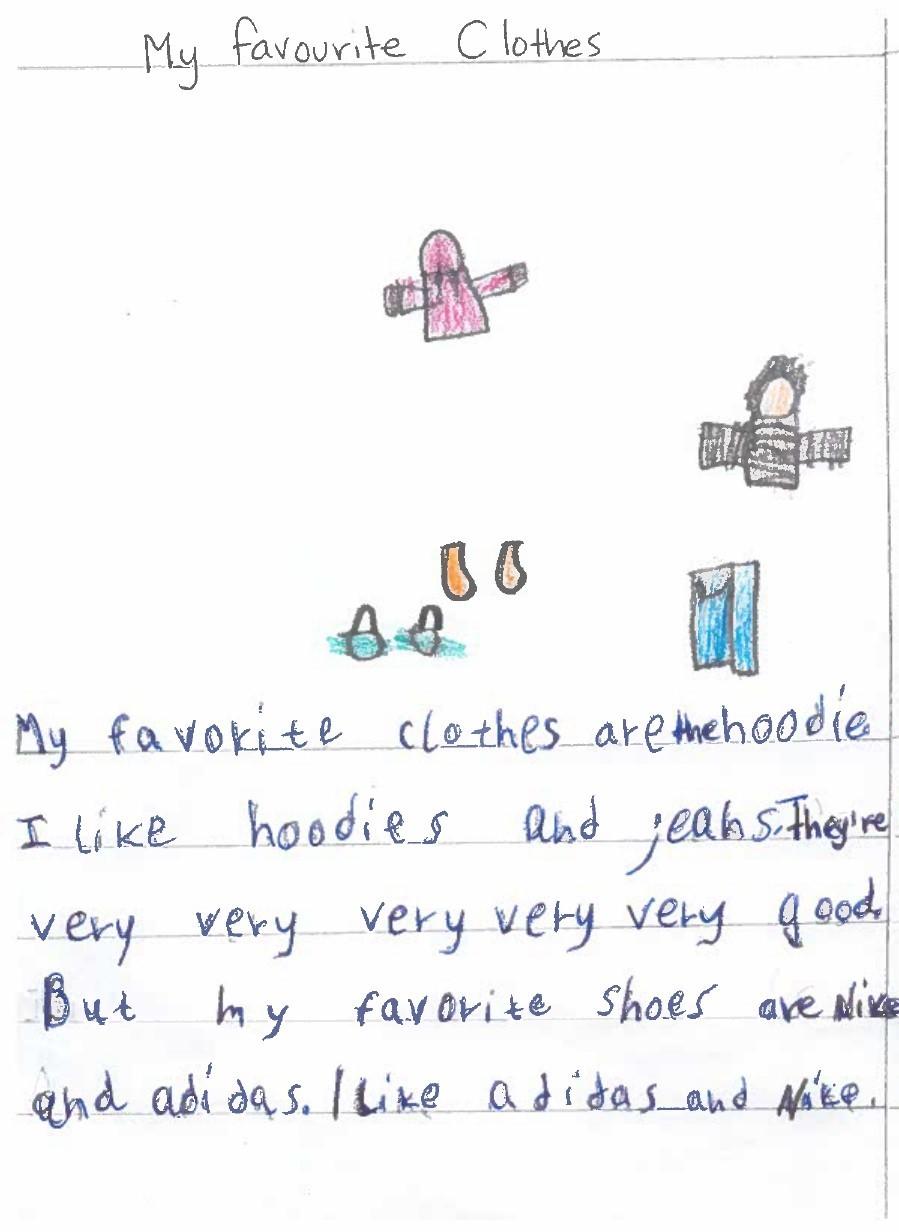 My favourite Clothes
My favorite clothes are the hoodie
I like hoodies and jeans. They're
very very very very very good.
But my favorite shoes are Nike
and adidas. I like adidas and Nike.